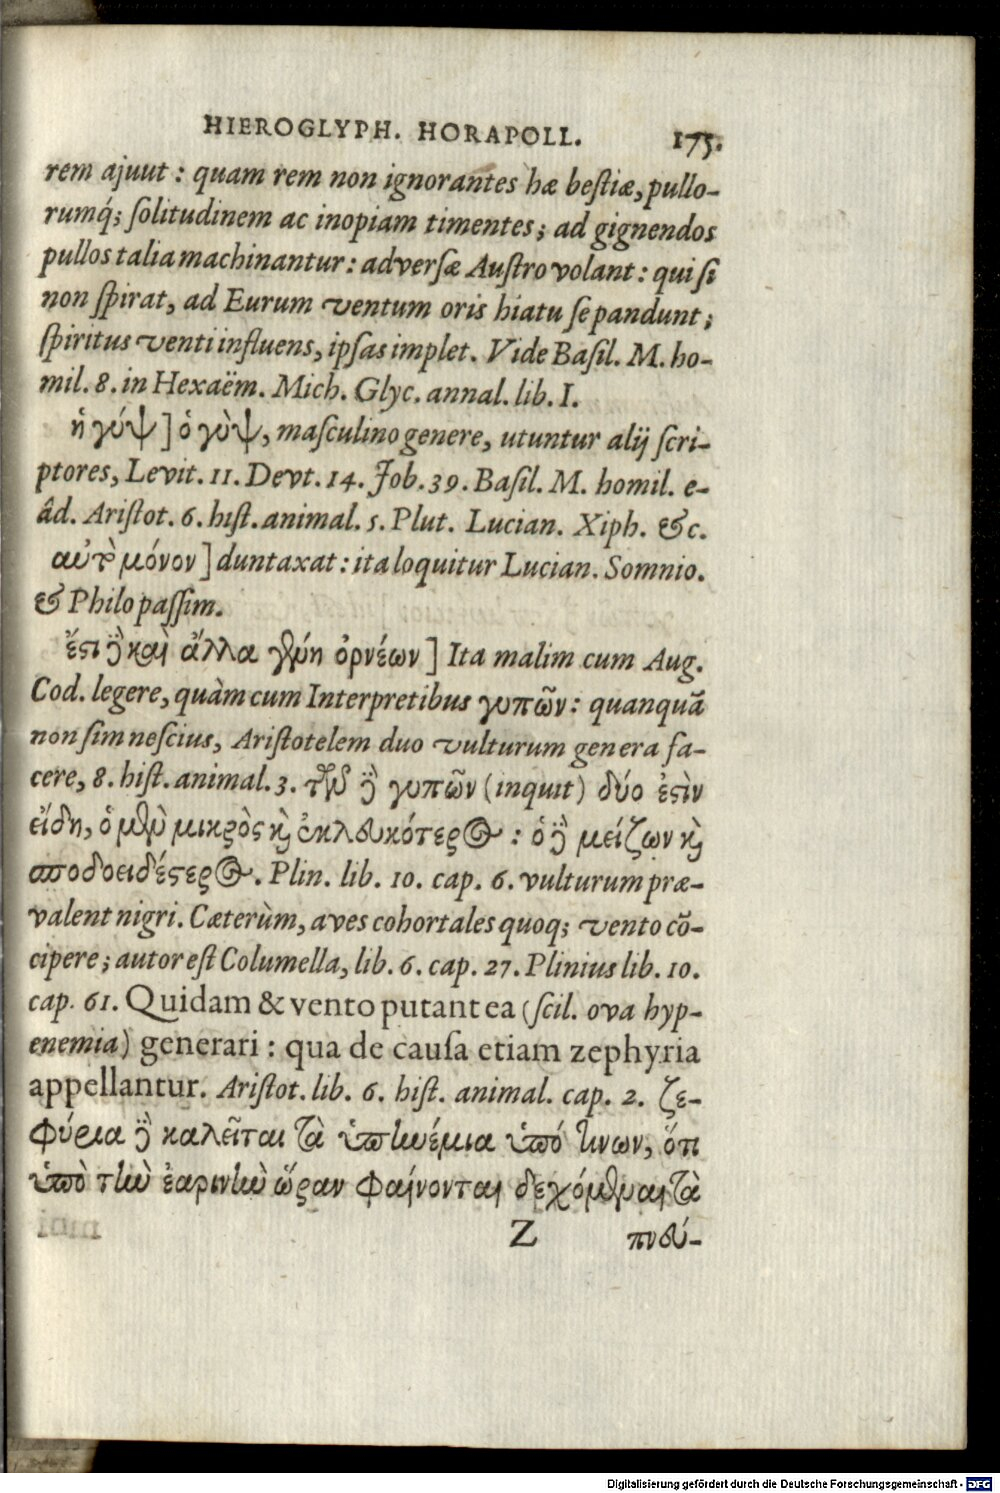 HIEROGLYPH. HORAPOLL. 175.
rem ajuut : quam rem non ignorantes hæ beſtiæ, pullo-
rumq́; ſolitudinem ac inopiam timentes; ad gignendos
pullos talia machinantur : adverſæ Auſtro volant : qui ſi
non ſpirat, ad Eurum ventum oris hiatu ſe pandunt;
ſpiritus venti influens, ipſas implet. Vide Baſil. M. ho-
mil. 8. in Hexaëm. Mich. Glyc. annal. lib. I.
ἡ γύψ ] ὁ γὺψ, maſculino genere, utuntur alij ſcri-
ptores, Levit. 11. Devt. 14. Job. 39. Baſil. M. homil. e-
âd. Ariſtot. 6. hiſt. animal. 5. Plut. Lucian. Xiph. &c.
αὐτὸ μόνον ] duntaxat : ita loquitur Lucian. Somnio.
& Philo paſſim.
ἔϛι δὲ καὶ ἄλλα γένη ὀρνέων ] Ita malim cum Aug.
Cod. legere, quàm cum Interpretibus γυπῶν : quanquā
non ſim neſcius, Ariſtotelem duo vulturum genera fa-
cere, 8. hiſt. animal. 3. τῶν δὲ γυπῶν (inquit) δύο ἐϛὶν
εἴδη, ὁ μὲν μικρὸς κὶ ἐκλευκότερος : ὁ δὲ μείζων κὶ
σποδοειδέϛερος. Plin. lib. 10. cap. 6. vulturum præ-
valent nigri. Cæterùm, aves cohortales quoq; vento cō-
cipere; autor eſt Columella, lib. 6. cap. 27. Plinius lib. 10.
cap. 61. Quidam & vento putant ea (ſcil. ova hyp-
enemia) generari : qua de cauſa etiam zephyria
appellantur. Ariſtot. lib. 6. hiſt. animal. cap. 2. ζε-
φύρια δὲ καλεῖται τὰ ὑπηνέμια ὑπό τινων, ὅτι
ὑπὸ τὴν ἐαρινὴν ὥραν φαίνονται δεχόμεναι τὰ
Z πνεύ-
Digitalisierung gefördert durch die Deutsche Forschungsgemeinschaft - DFG